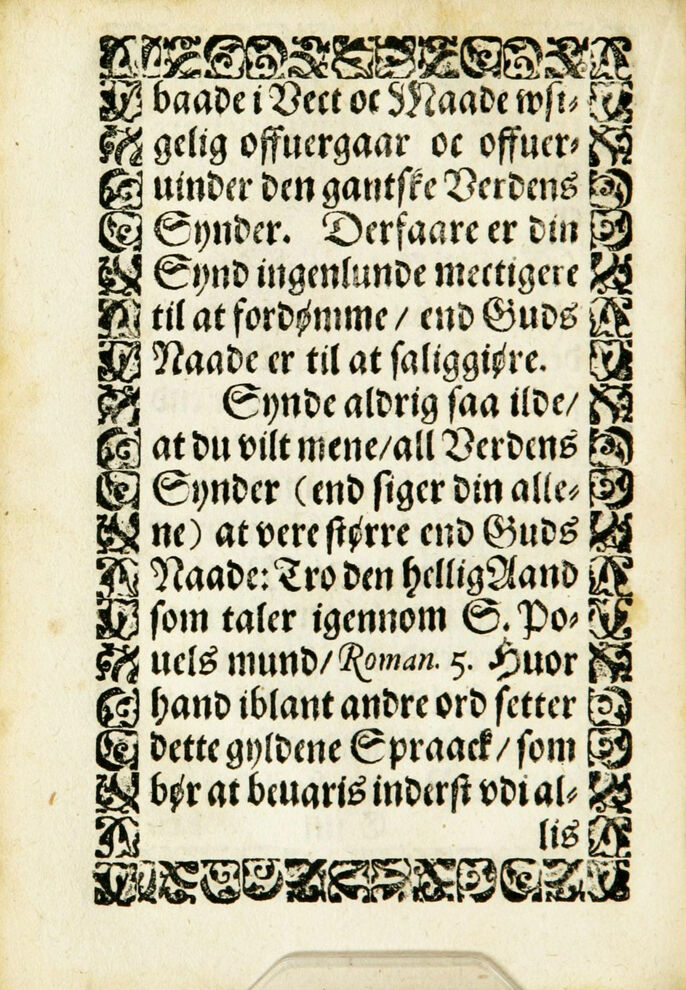 baade i Vect oc Maade wsi⸗
gelig offuergaar oc offuer⸗
uinder den gantske Verdens
Synder. Derfaare er din
Synd ingenlunde mectigere
til at fordømme / end Guds
Naade er til at saliggiøre.
Synde aldrig saa ilde/
at du vilt mene/all Verdens
Synder (end siger din alle⸗
ne) at vere større end Guds
Naade: Tro den hellig Aand
som taler igennom S. Po⸗
uels mund/ Roman. 5. Huor
hand iblant andre ord setter
dette gyldene Spraack / som
bør at beuaris inderst vdi al⸗
lis